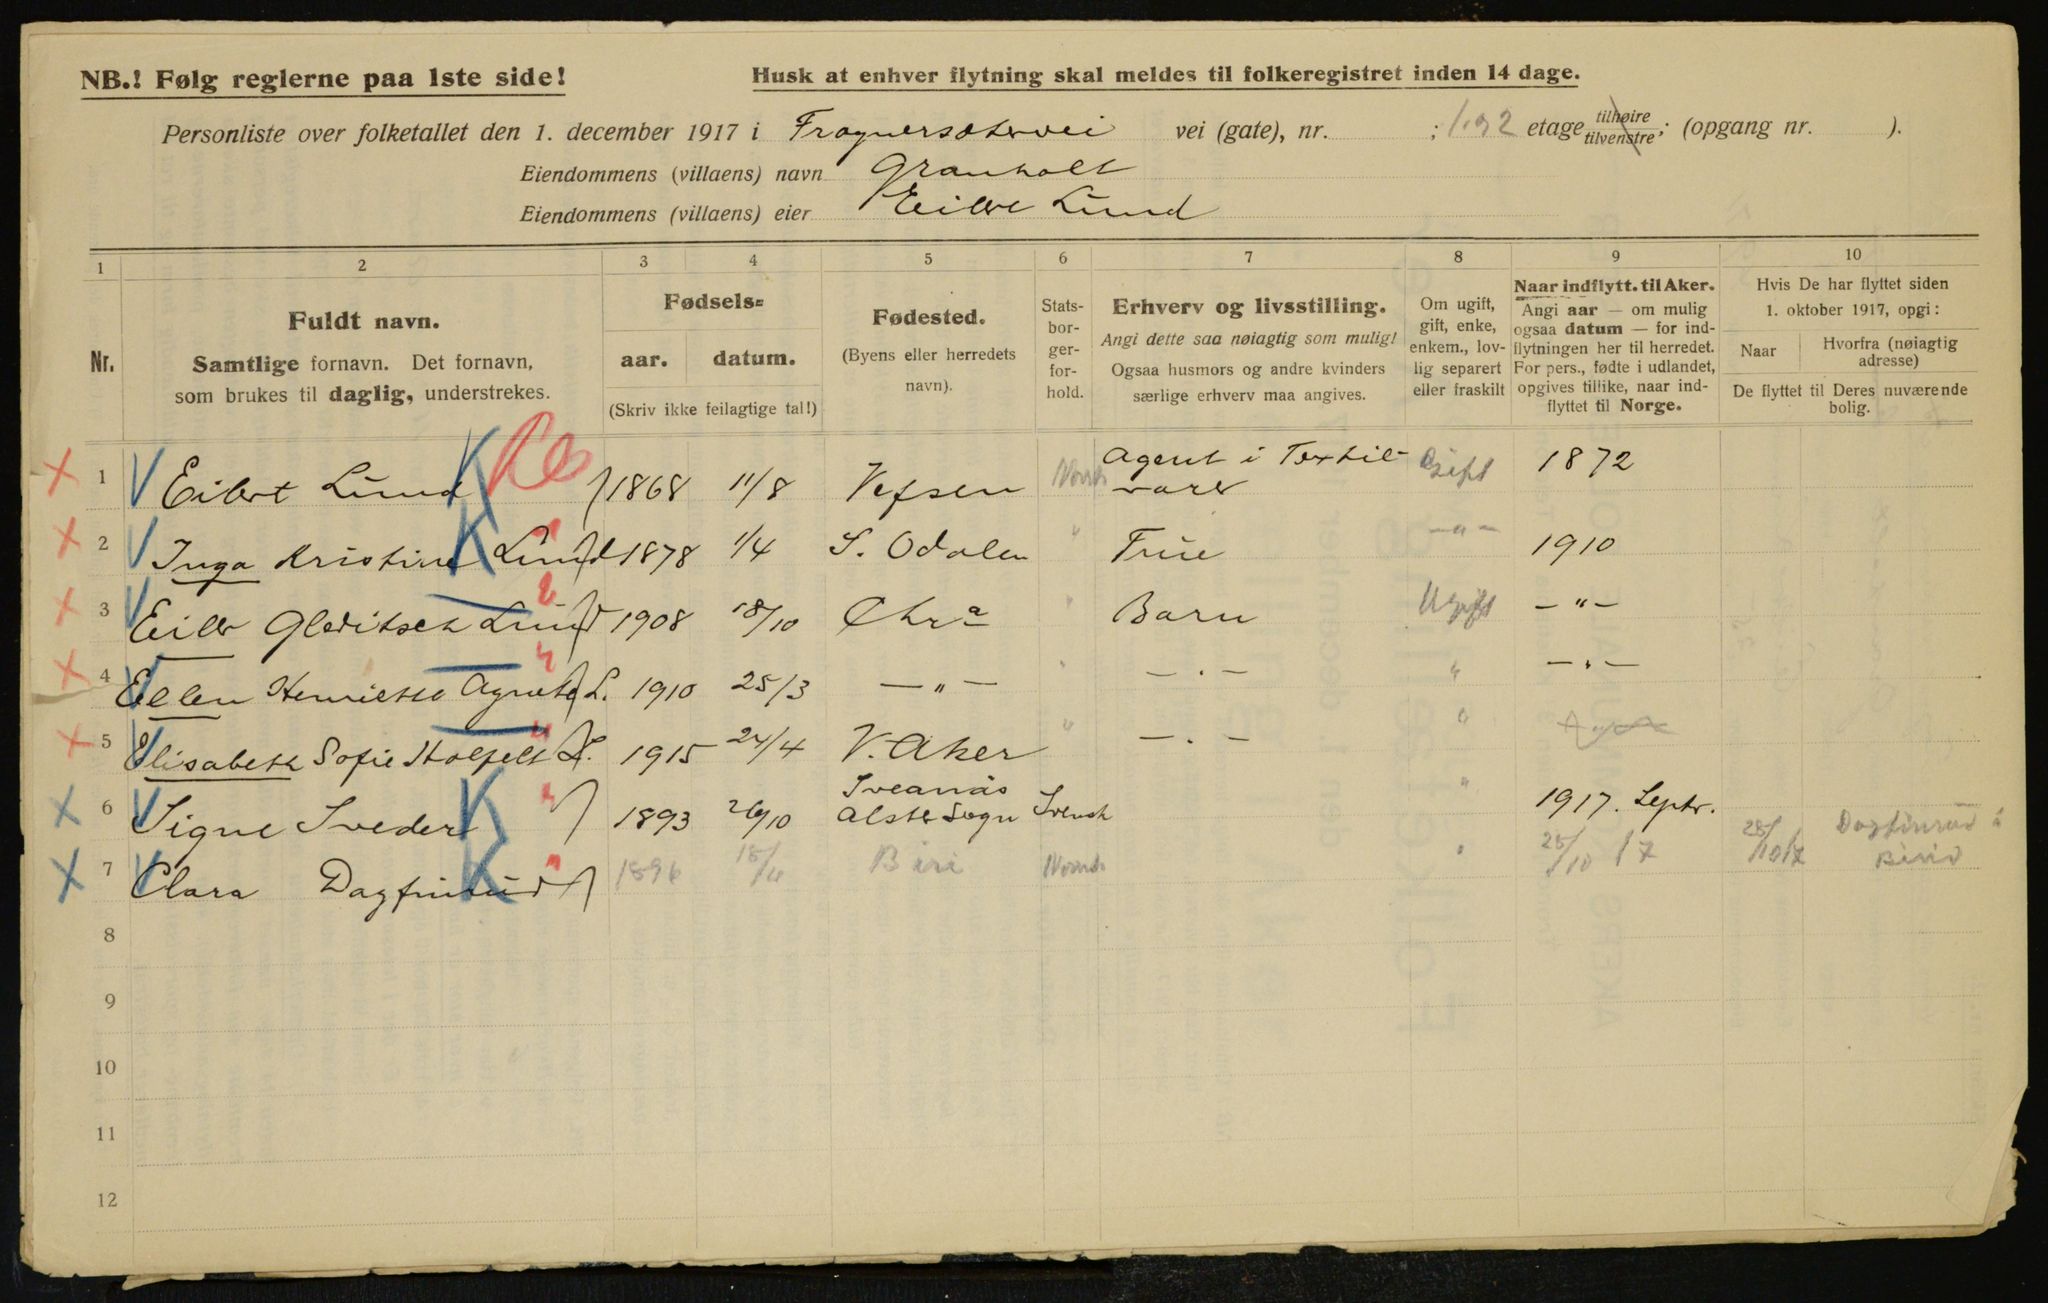 NB.! Følg reglerne paa 1ste side!
Husk at enhver flytning skal meldes til folkeregistret inden 14 dage.
Personliste over folketallet den 1. december 1917 i Frognersætervei vei (gate), nr. ; 1 og 2 etage tilhøire tilvenstre; (opgang nr. ).
Eiendommens (villaens) navn Granholt
Eiendommens (villaens) eier Eilert Lund
1 2 3 4 5 6 7 8 9 10
Nr.
Fuldt navn.
Samtlige fornavn. Det fornavn,
som brukes til daglig, understrekes.
Fødsels-
aar. datum.
(Skriv ikke feilagtige tal!)
Fødested.
(Byens eller herredets
navn).
Stats-
bor-
ger-
for-
hold.
Erhverv og livsstilling.
Angi dette saa nøiagtig som mulig!
Ogsaa husmors og andre kvinders
særlige erhverv maa angives.
Om ugift,
gift, enke,
enkem., lov-
lig separert
eller fraskilt
Naar indflytt. til Aker.
Angi aar — om mulig
ogsaa datum — for ind-
flytningen her til herredet.
For pers., fødte i udlandet,
opgives tillike, naar ind-
flyttet til Norge.
Hvis De har flyttet siden
1. oktober 1917, opgi:
Naar
Hvorfra (nøiagtig
adresse)
De flyttet til Deres nuværende
bolig.
1 Eilert Lund K 1868 11/8 Vefsen Norsk Agent i Textil-varer Gift 1872
2 Inga Kristine Lund K 1878 1/4 S. Odalen " Frue —"— 1910
3 Eiler Gleditsch Lund 1908 18/10 Chr a " Barn Ugift —"—
4 Ellen Henriette Agnete L. 1910 25/3 —"— " —"— " —"—
5 Elisabeth Sofie Holfelt L. 1915 24/4 V. Aker " —"— "
6 Signe Sveder K 1893 26/10 Sveanäs Alster Sogn Svensk " 1917. Septr.
7 Clara Dagfinrud K 1896 18/4 Biri Norsk " 25/10 17 25/10 17 Dagfinrud i Biri
8
9
10
11
12